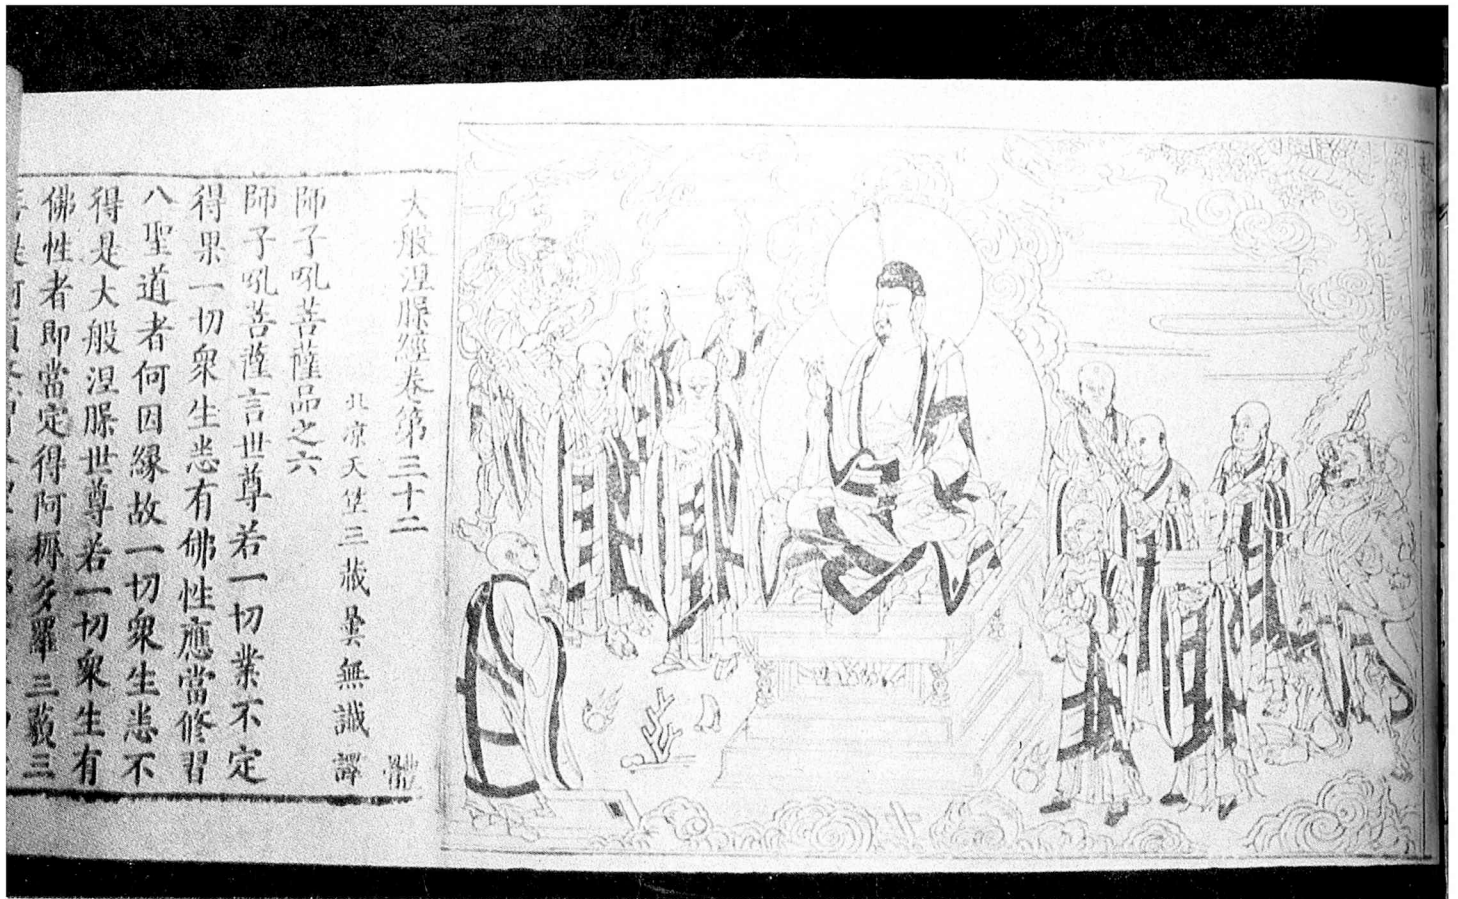 大般涅槃經卷第三十二 體
北涼天竺三藏曇無讖譯
師子吼菩薩品之六
師子吼菩薩言世尊若一切業不定
得果一切衆生悉有佛性應當修習
八聖道者何因緣故一切衆生悉不
得是大般涅槃世尊若一切衆生有
佛性者即當定得阿耨多羅三藐三